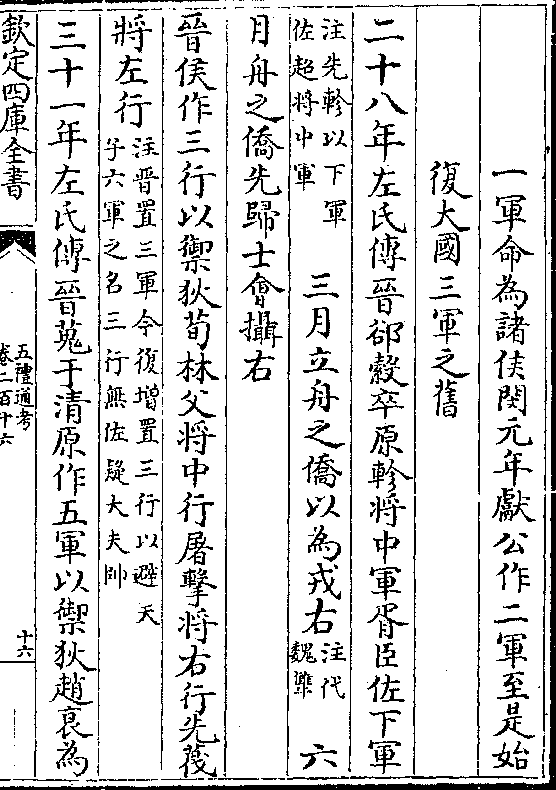 一軍命為諸侯閔元年獻公作二軍至是始
復大國三軍之舊
二十八年左氏傳晉郤縠卒原軫將中軍胥臣佐下軍
注先軫以下軍
佐超將中軍
三月立舟之僑以為戎右
注代
魏犫
六
月舟之僑先歸士會攝右
晉侯作三行以禦狄荀林父將中行屠擊將右行先蔑
將左行
注晉置三軍今復增置三行以避天
子六軍之名三行無佐疑大夫帥
三十一年左氏傳晉蒐于清原作五軍以禦狄趙衰為
欽定四庫全書
五禮通考
卷二百十六
十六